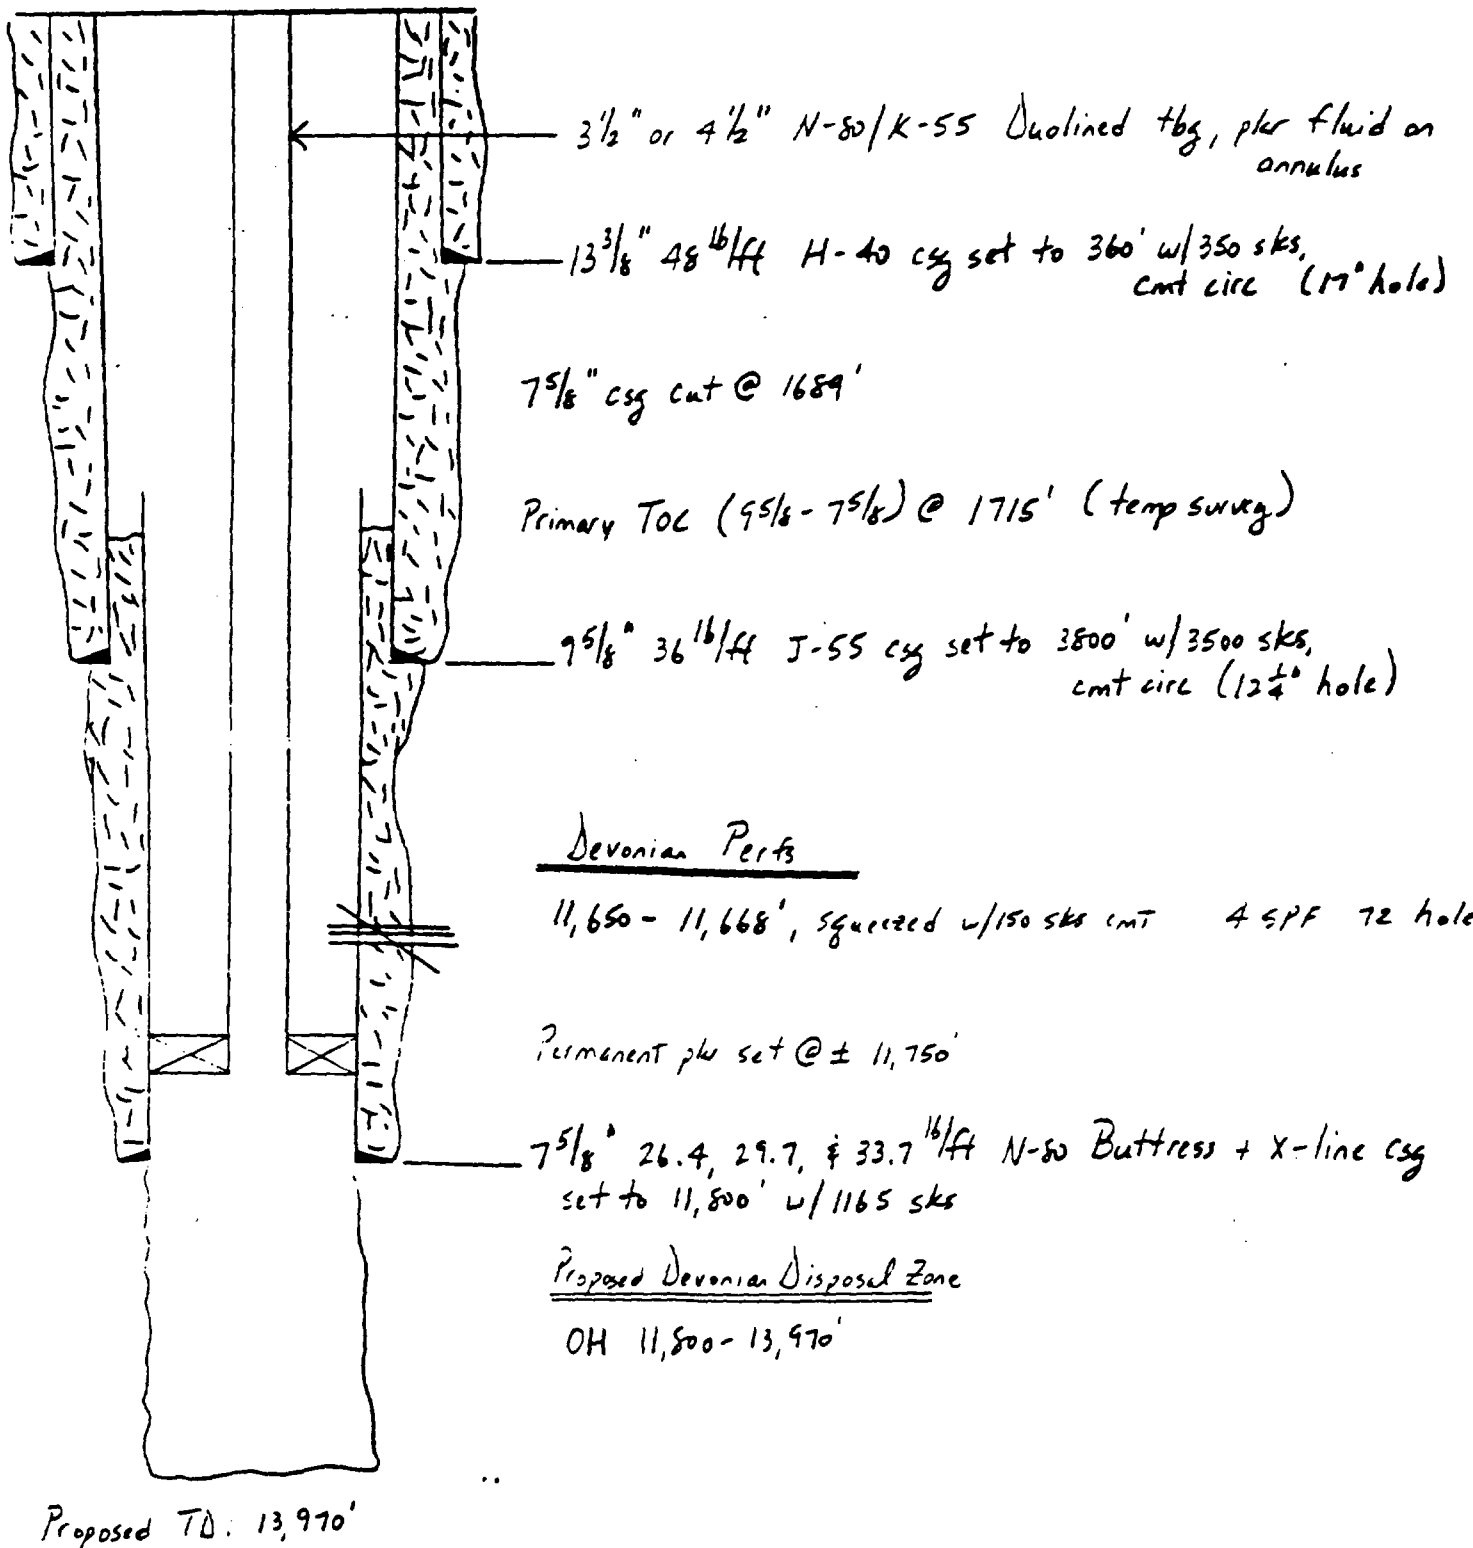 3 1/2" or 4 1/2" N-80/K-55 Duolined tbg, pkr fluid on
annulus
13 3/8" 48 lb/ft H-40 csg set to 360' w/350 sks,
cmt circ (17" hole)
7 5/8" csg cut @ 1689'
Primary TOC (9 5/8 - 7 5/8) @ 1715' (temp survey)
9 5/8" 36 lb/ft J-55 csg set to 3800' w/3500 sks,
cmt circ (12 1/4" hole)
Devonian Perfs
11,650 - 11,668', squeezed w/150 sks cmt 4 SPF 72 hole
Permanent pkr set @ ± 11,750'
7 5/8" 26.4, 29.7, & 33.7 lb/ft N-80 Buttress + X-line csg
set to 11,800' w/1165 sks
Proposed Devonian Disposal Zone
OH 11,800 - 13,970'
Proposed TD: 13,970'